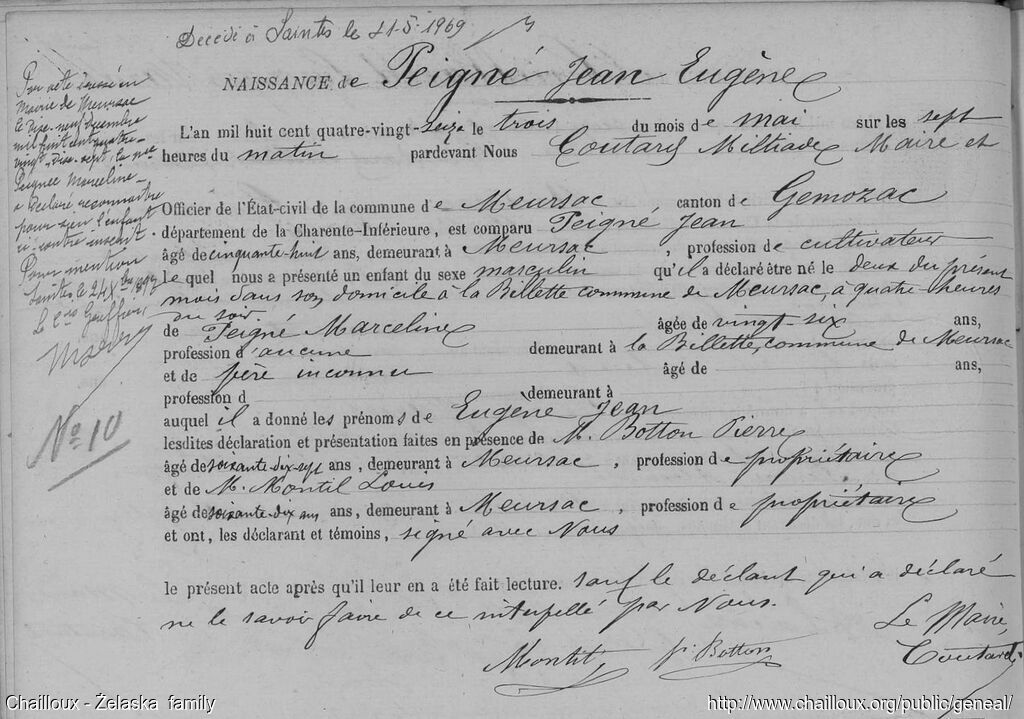 Décédé à Saintes le 21-5-1969
NAISSANCE de Peigné Jean Eugène
Par acte
Mairie de Meursac
le dix-neuf Décembre
mil huit cent quatre-
vingt-dix-sept la
Peigné Marceline
a déclaré reconnaître
pour sien l'enfant
ci-contre inscrit
Pour mention
Saintes le 24 Xbre 1897
Le
N° 10
L'an mil huit cent quatre-vingt-seize le trois du mois de mai sur les sept
heures du matin pardevant Nous Coutard Miltiade Maire et
Officier de l'État-civil de la commune de Meursac canton de Gemozac
département de la Charente-Inférieure, est comparu Peigné Jean
âgé de cinquante-huit ans, demeurant à Meursac, profession de cultivateur
le quel nous a présenté un enfant du sexe masculin qu'il a déclaré être né le deux du présent
mois dans son domicile à la Billette commune de Meursac, à quatre heures
du soir
de Peigné Marceline âgée de vingt-six ans,
profession d'aucune demeurant à la Billette, commune de Meursac
et de père inconnu âgé de ans,
profession d demeurant à
auquel il a donné les prénoms de Eugène Jean
lesdites déclaration et présentation faites en présence de M. Botton Pierre
âgé de soixante-dix-sept ans, demeurant à Meursac, profession de propriétaire
et de M. Montil Louis
âgé de soixante-dix ans ans, demeurant à Meursac, profession de propriétaire
et ont, les déclarant et témoins, signé avec Nous
le présent acte après qu'il leur en a été fait lecture. sauf le déclant qui a déclaré
ne le savoir faire de ce interpellé par Nous.
Le Maire,
Montil P. Botton Coutard
Chailloux - Żelaska family
http://www.chailloux.org/public/geneal/